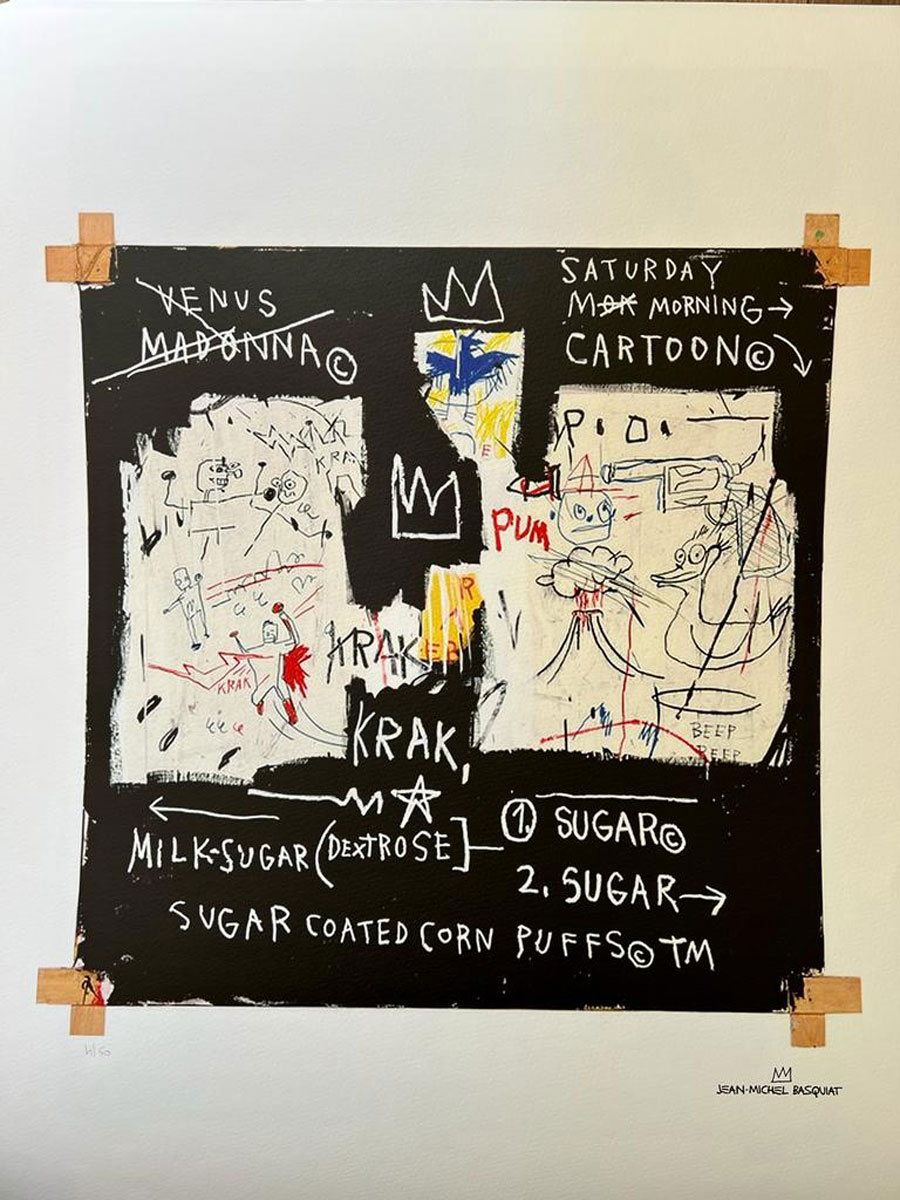 VENUS
MADONNA ©
SATURDAY
MOR MORNING →
CARTOON ©
P.O.
KRA
E
PUM
R
KRAK
EB
KRAK
BEEP
BEEP
KRAK,
MILK-SUGAR (DEXTROSE]
1. SUGAR ©
2. SUGAR →
SUGAR COATED CORN PUFFS © TM
A
JEAN-MICHEL BASQUIAT